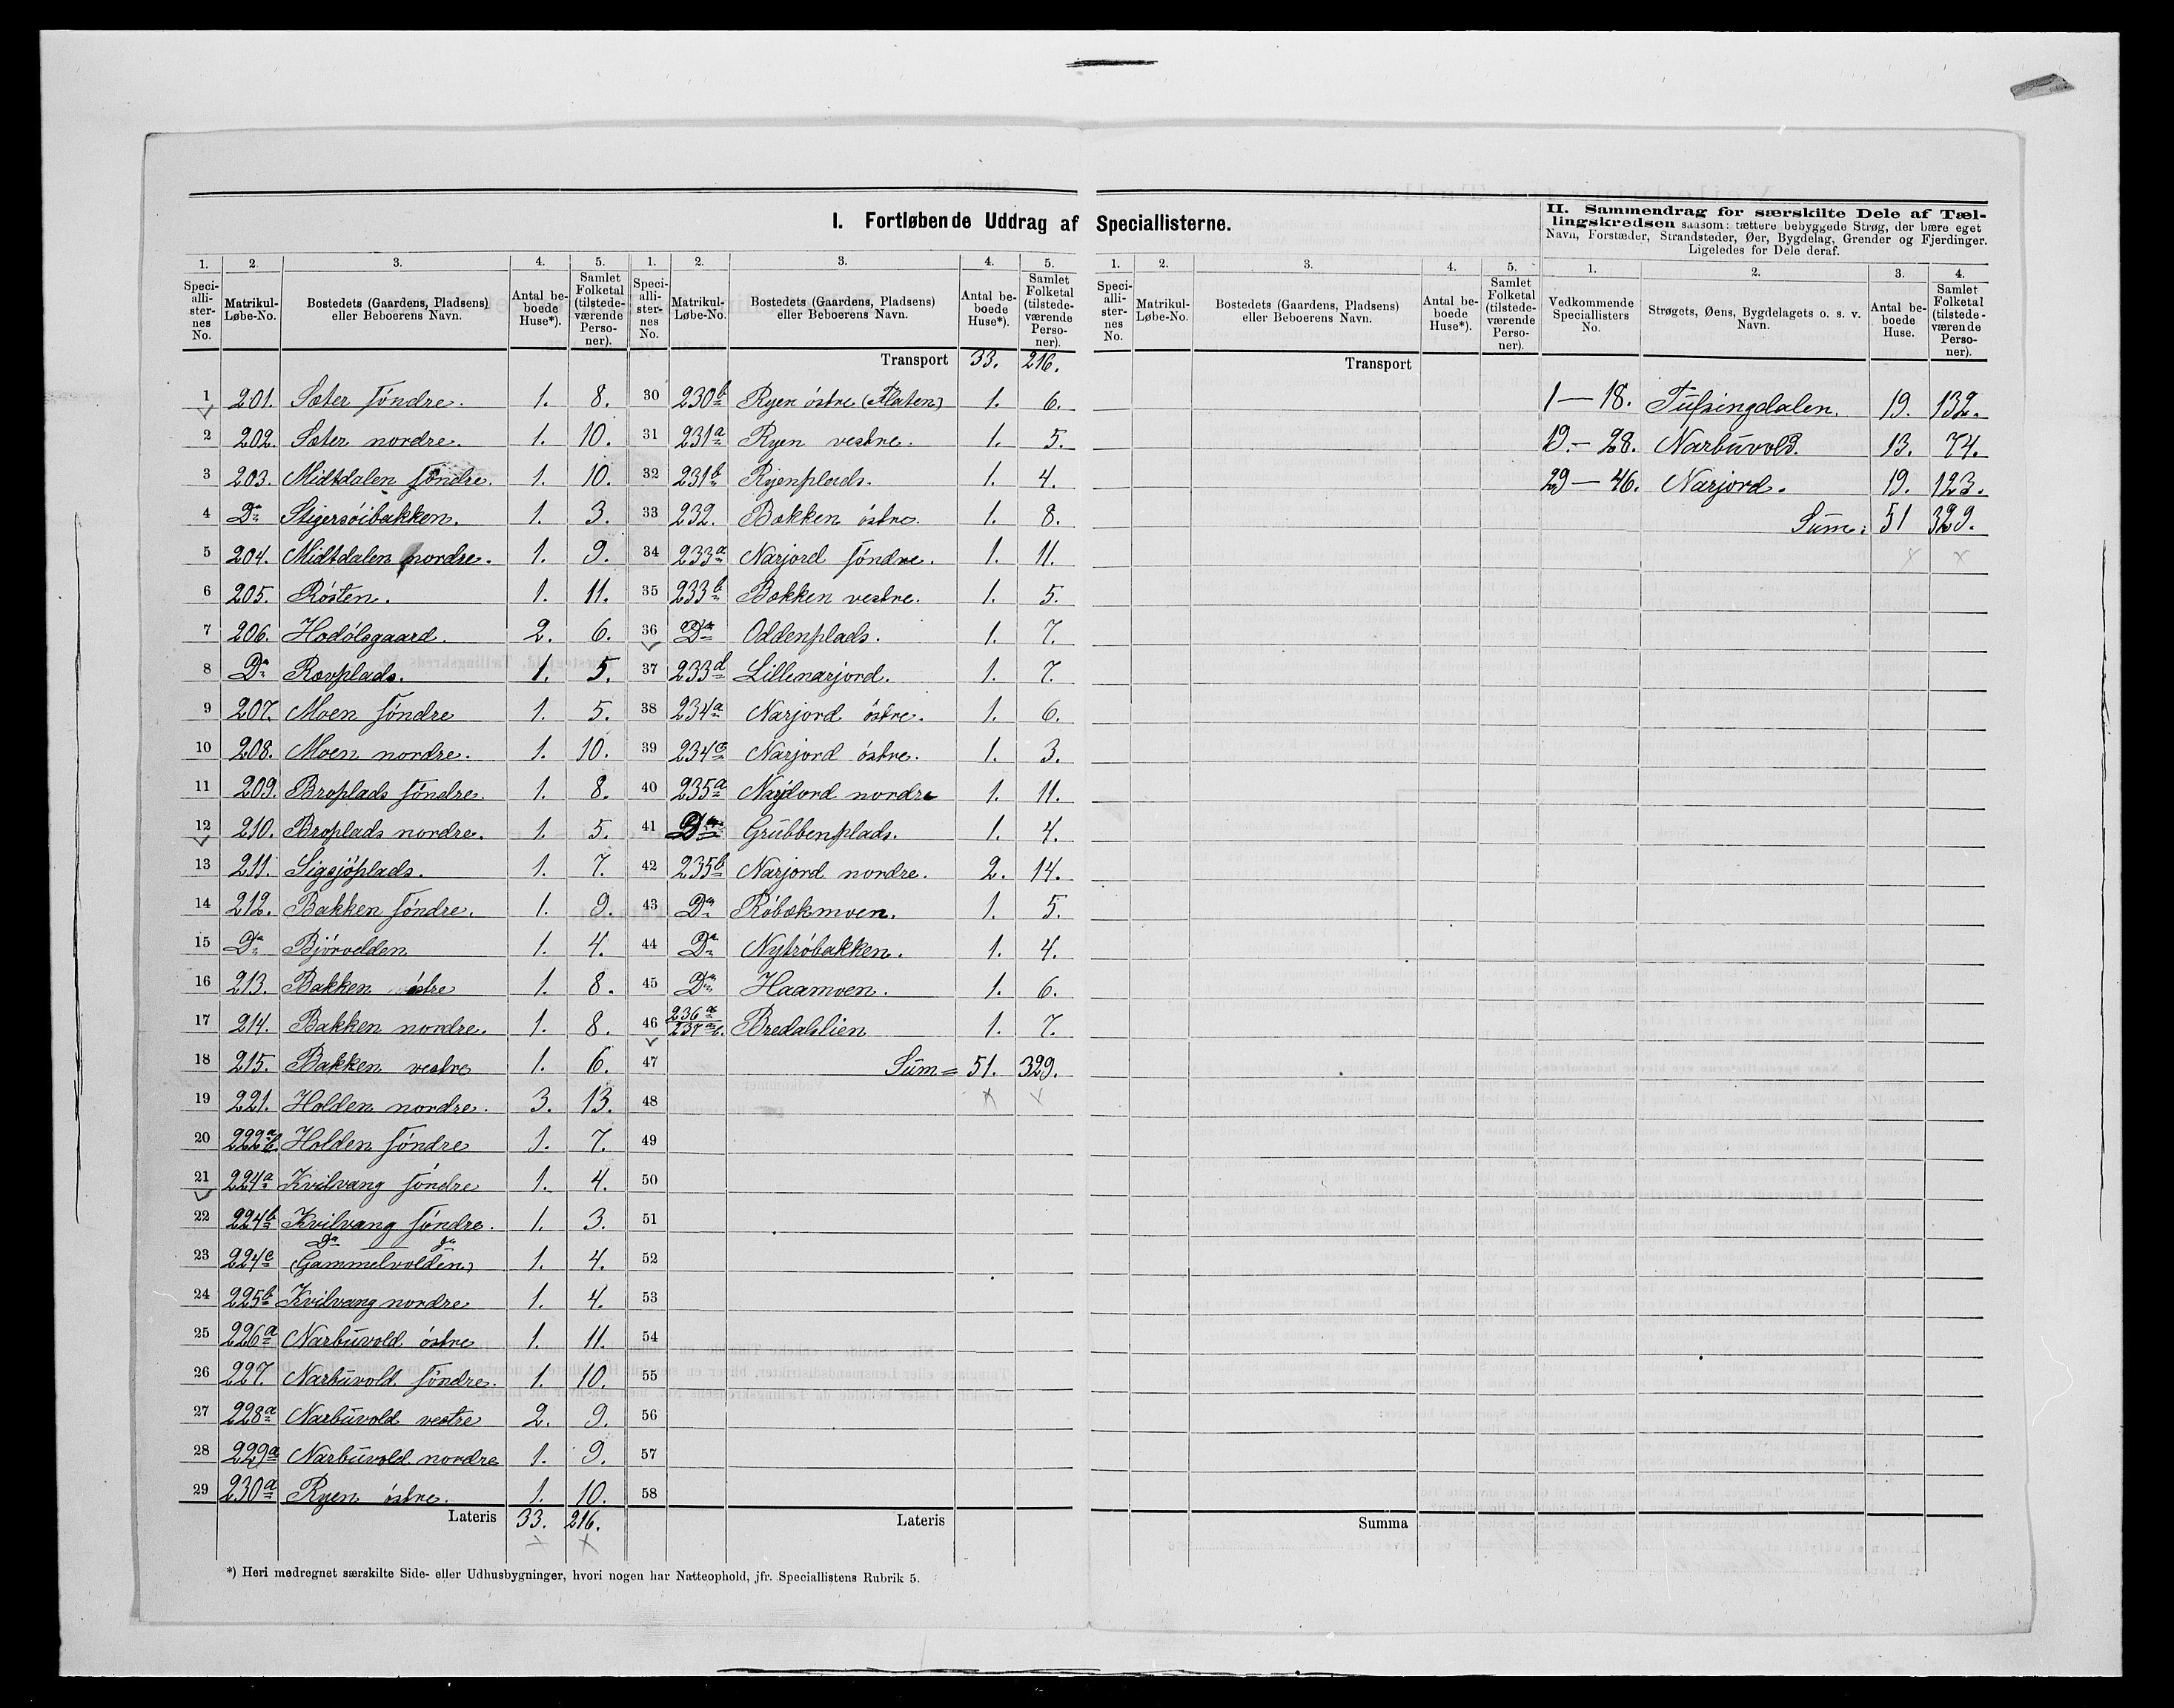 I. Fortløbende Uddrag af Speciallisterne.
II. Sammendrag for særskilte Dele af Tællingskredsen saasom: tættere bebyggede Strøg, der bære eget Navn, Forstæder, Strandsteder, Øer, Bygdelag, Grender og Fjerdinger. Ligeledes for Dele deraf.
1. 2. 3. 4. 5.
Speciallisternes No. Matrikul-Løbe-No. Bostedets (Gaardens, Pladsens) eller Beboerens Navn. Antal beboede Huse*). Samlet Folketal (tilstedeværende Personer).
1 201. Sæter söndre. 1. 8.
2 202. Sæter nordre. 1. 10.
3 203. Midtdalen söndre. 1. 10.
4 Do Stigersöibakken. 1. 3.
5 204. Midtdalen nordre. 1. 9.
6 205. Rösten. 1. 11.
7 206. Hodölsgaard. 2. 6.
8 Do Rovplads. 1. 5.
9 207. Moen söndre 1. 5.
10 208. Moen nordre. 1. 10.
11 209. Broplads söndre. 1. 8.
12 210. Broplads nordre. 1. 5.
13 211. Sigsjöplads. 1. 7.
14 212. Bakken söndre. 1. 9.
15 Do Björvolden 1. 4.
16 213. Bakken östre 1. 8.
17 214. Bakken nordre. 1. 8.
18 215. Bakken vestre 1. 6.
19 221. Holden nordre. 3. 13.
20 222 a b. Holden söndre 1. 7.
21 224a Kvilvang söndre 1. 4.
22 224b Kvilvang söndre. 1. 3.
23 224c Do do (Gammelvolden) 1. 4.
24 225b Kvilvang nordre 1. 4.
25 226a Narbuvold östre 1. 11.
26 227. Narbuvold söndre. 1. 10.
27 228a Narbuvold vestre 2. 9.
28 229a Narbuvold nordre 1. 9.
29 230a Ryen östre. 1. 10.
Lateris 33. 216.
1. 2. 3. 4. 5.
Speciallisternes No. Matrikul-Løbe-No. Bostedets (Gaardens, Pladsens) eller Beboerens Navn. Antal beboede Huse*). Samlet Folketal (tilstedeværende Personer).
Transport 33. 216.
30 230b Ryen östre (Flaten) 1. 6.
31 231a Ryen vestre. 1. 5.
32 231b Ryenplads. 1. 4.
33 232. Bakken östre. 1. 8.
34 233a Narjord söndre. 1. 11.
35 233b Bakken vestre. 1. 5.
36 Do Oddenplads. 1. 7.
37 233d Lillenarjord. 1. 7.
38 234a Narjord östre. 1. 6.
39 234c Narjord östre. 1. 3.
40 235a Narjord nordre 1. 11.
41 Do Grubbenplads. 1. 4.
42 235b Narjord nordre. 2. 14.
43 Do Röbækmoen. 1. 5.
44 Do Nytröbakken. 1. 4.
45 Do Haamoen. 1. 6.
46 236a 237 a b. Bredahlien 1. 7.
47 Sum = 51. 329.
48
49
50
51
52
53
54
55
56
57
58
Lateris
1. 2. 3. 4. 5.
Speciallisternes No. Matrikul-Løbe-No. Bostedets (Gaardens, Pladsens) eller Beboerens Navn. Antal beboede Huse*). Samlet Folketal (tilstedeværende Personer).
Transport
Summa
1. 2. 3. 4.
Vedkommende Speciallisters No. Strøgets, Øens, Bygdelagets o. s. v. Navn. Antal beboede Huse. Samlet Folketal (tilstedeværende Personer).
1 — 18. Tufsingdalen. 19. 132.
19. — 28. Narbuvold. 13. 74.
29 — 46. Narjord. 19. 123.
Sum: 51 329.
*) Heri medregnet særskilte Side- eller Udhusbygninger, hvori nogen har Natteophold, jfr. Speciallistens Rubrik 5.